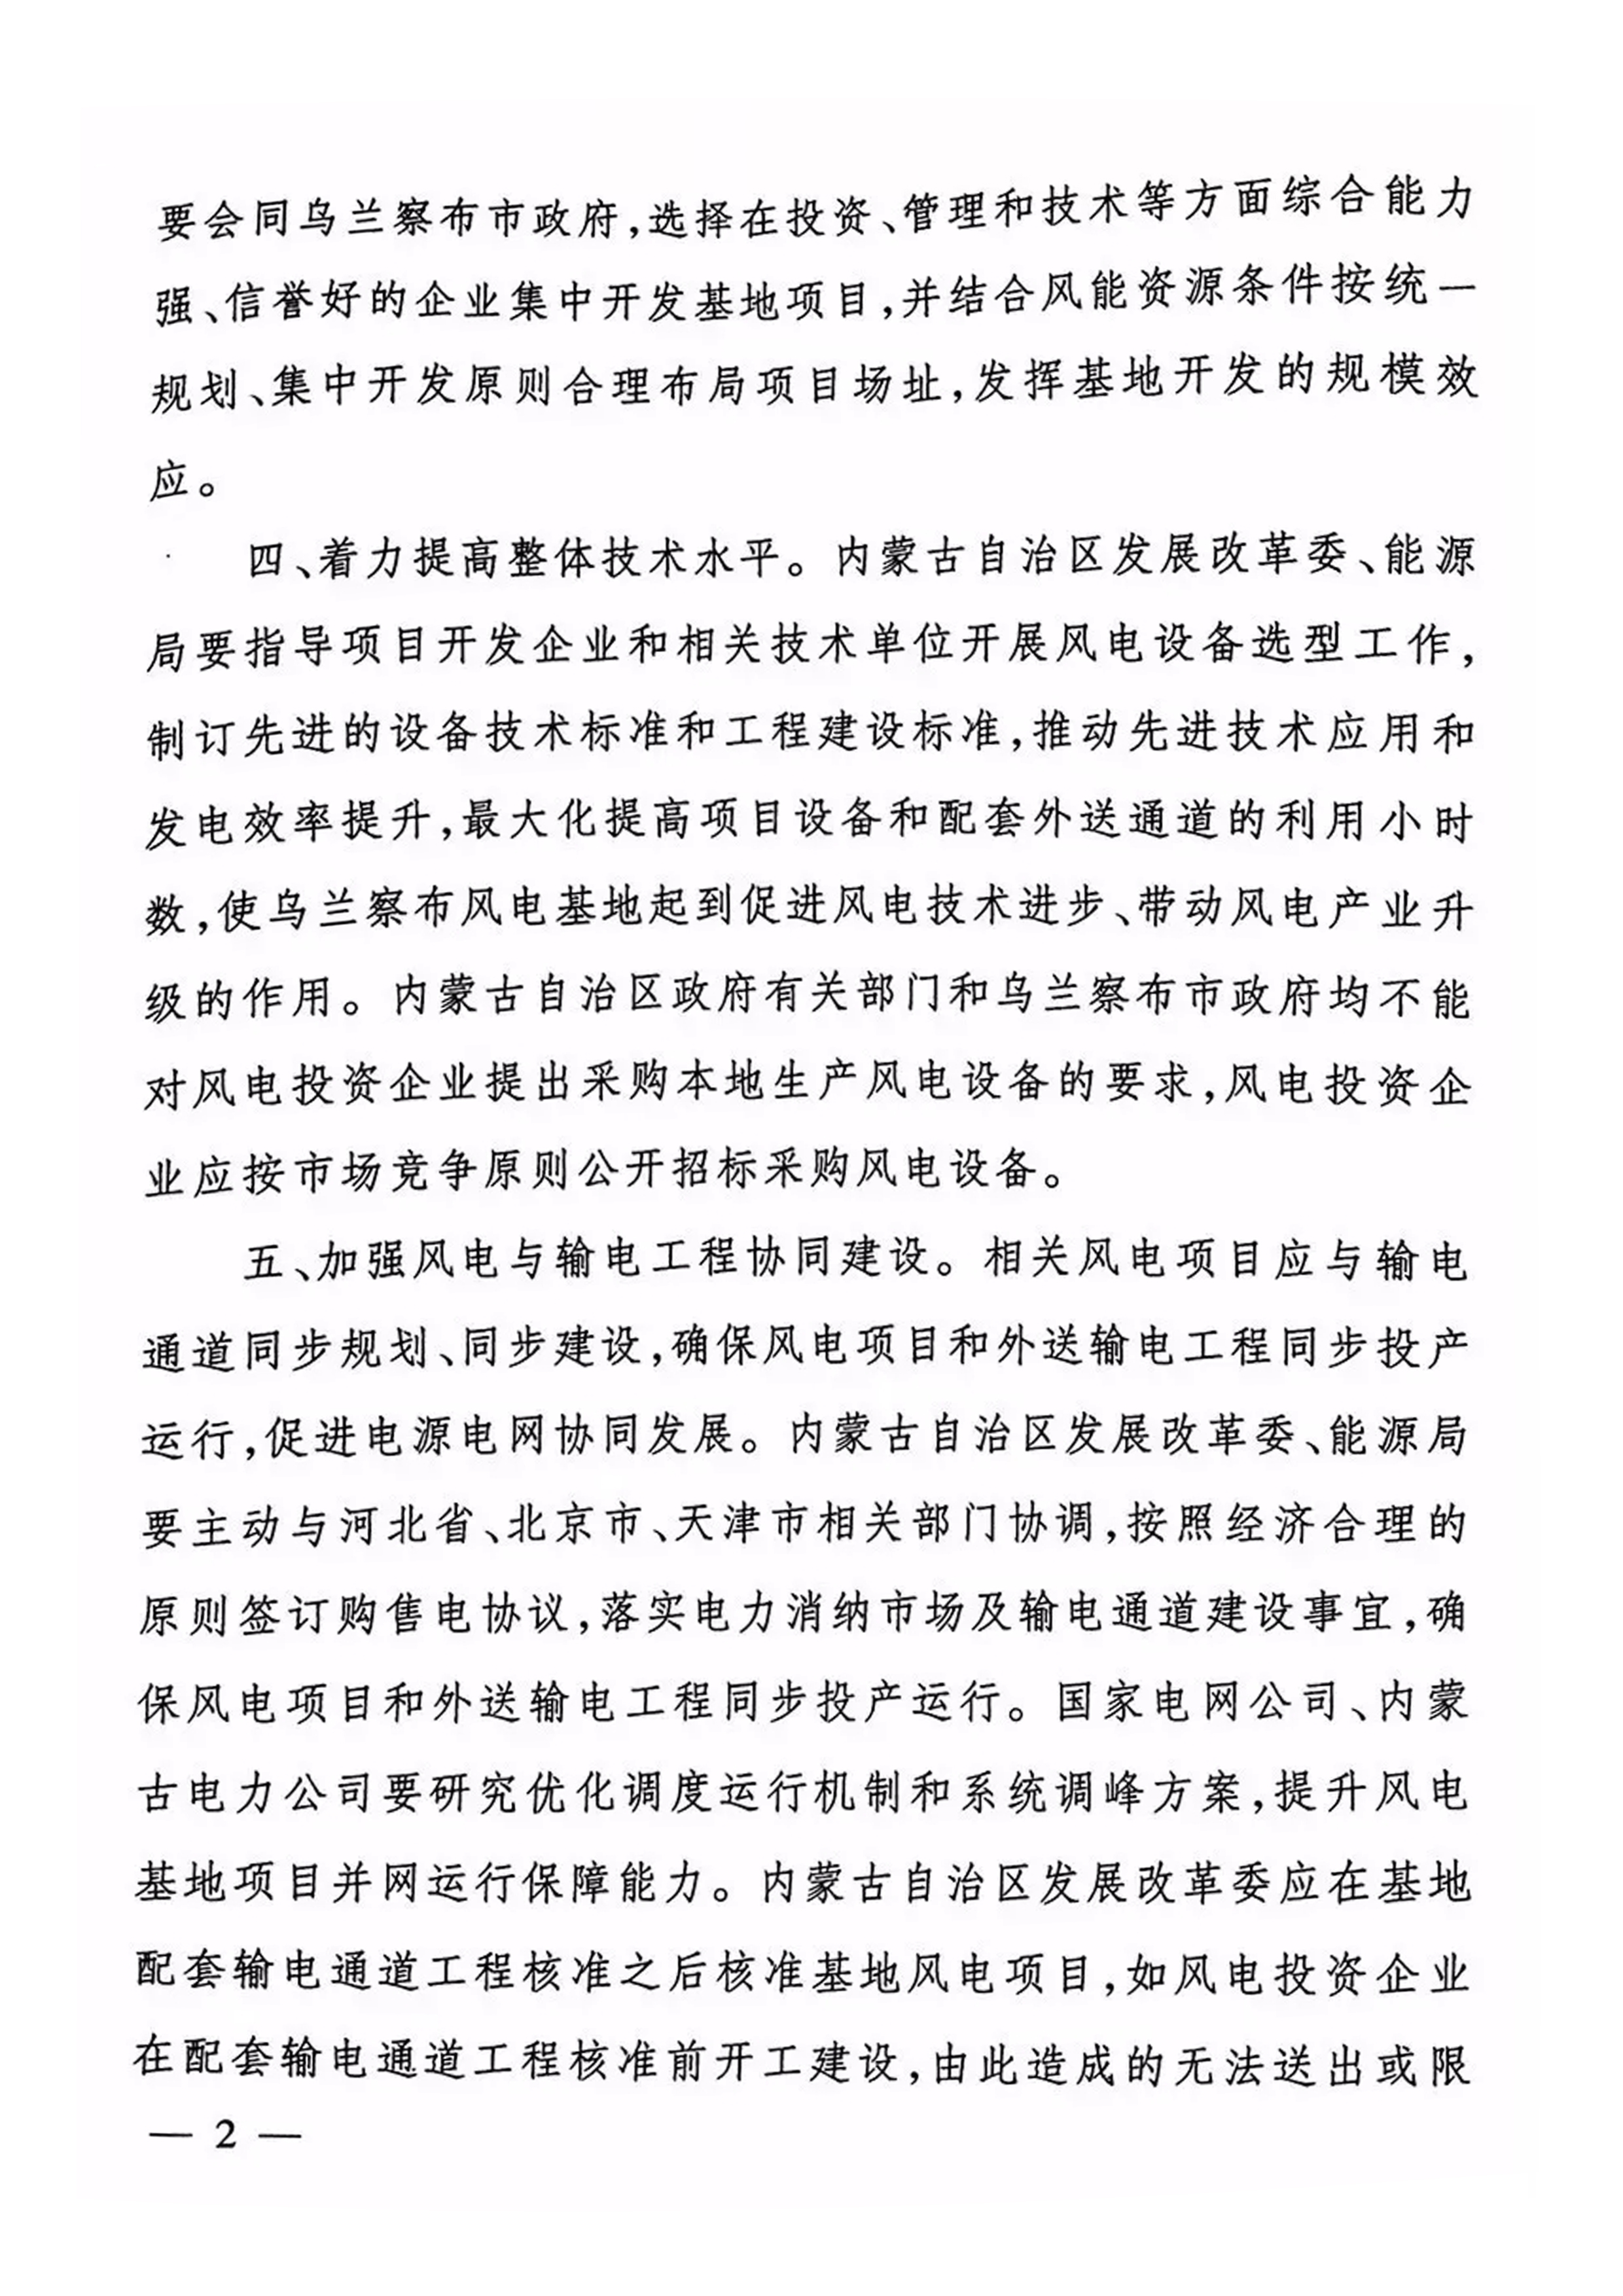 要会同乌兰察布市政府,选择在投资、管理和技术等方面综合能力
强、信誉好的企业集中开发基地项目,并结合风能资源条件按统一
规划、集中开发原则合理布局项目场址,发挥基地开发的规模效
应。
四、着力提高整体技术水平。内蒙古自治区发展改革委、能源
局要指导项目开发企业和相关技术单位开展风电设备选型工作,
制订先进的设备技术标准和工程建设标准,推动先进技术应用和
发电效率提升,最大化提高项目设备和配套外送通道的利用小时
数,使乌兰察布风电基地起到促进风电技术进步、带动风电产业升
级的作用。内蒙古自治区政府有关部门和乌兰察布市政府均不能
对风电投资企业提出采购本地生产风电设备的要求,风电投资企
业应按市场竞争原则公开招标采购风电设备。
五、加强风电与输电工程协同建设。相关风电项目应与输电
通道同步规划、同步建设,确保风电项目和外送输电工程同步投产
运行,促进电源电网协同发展。内蒙古自治区发展改革委、能源局
要主动与河北省、北京市、天津市相关部门协调,按照经济合理的
原则签订购售电协议,落实电力消纳市场及输电通道建设事宜,确
保风电项目和外送输电工程同步投产运行。国家电网公司、内蒙
古电力公司要研究优化调度运行机制和系统调峰方案,提升风电
基地项目并网运行保障能力。内蒙古自治区发展改革委应在基地
配套输电通道工程核准之后核准基地风电项目,如风电投资企业
在配套输电通道工程核准前开工建设,由此造成的无法送出或限
— 2 —